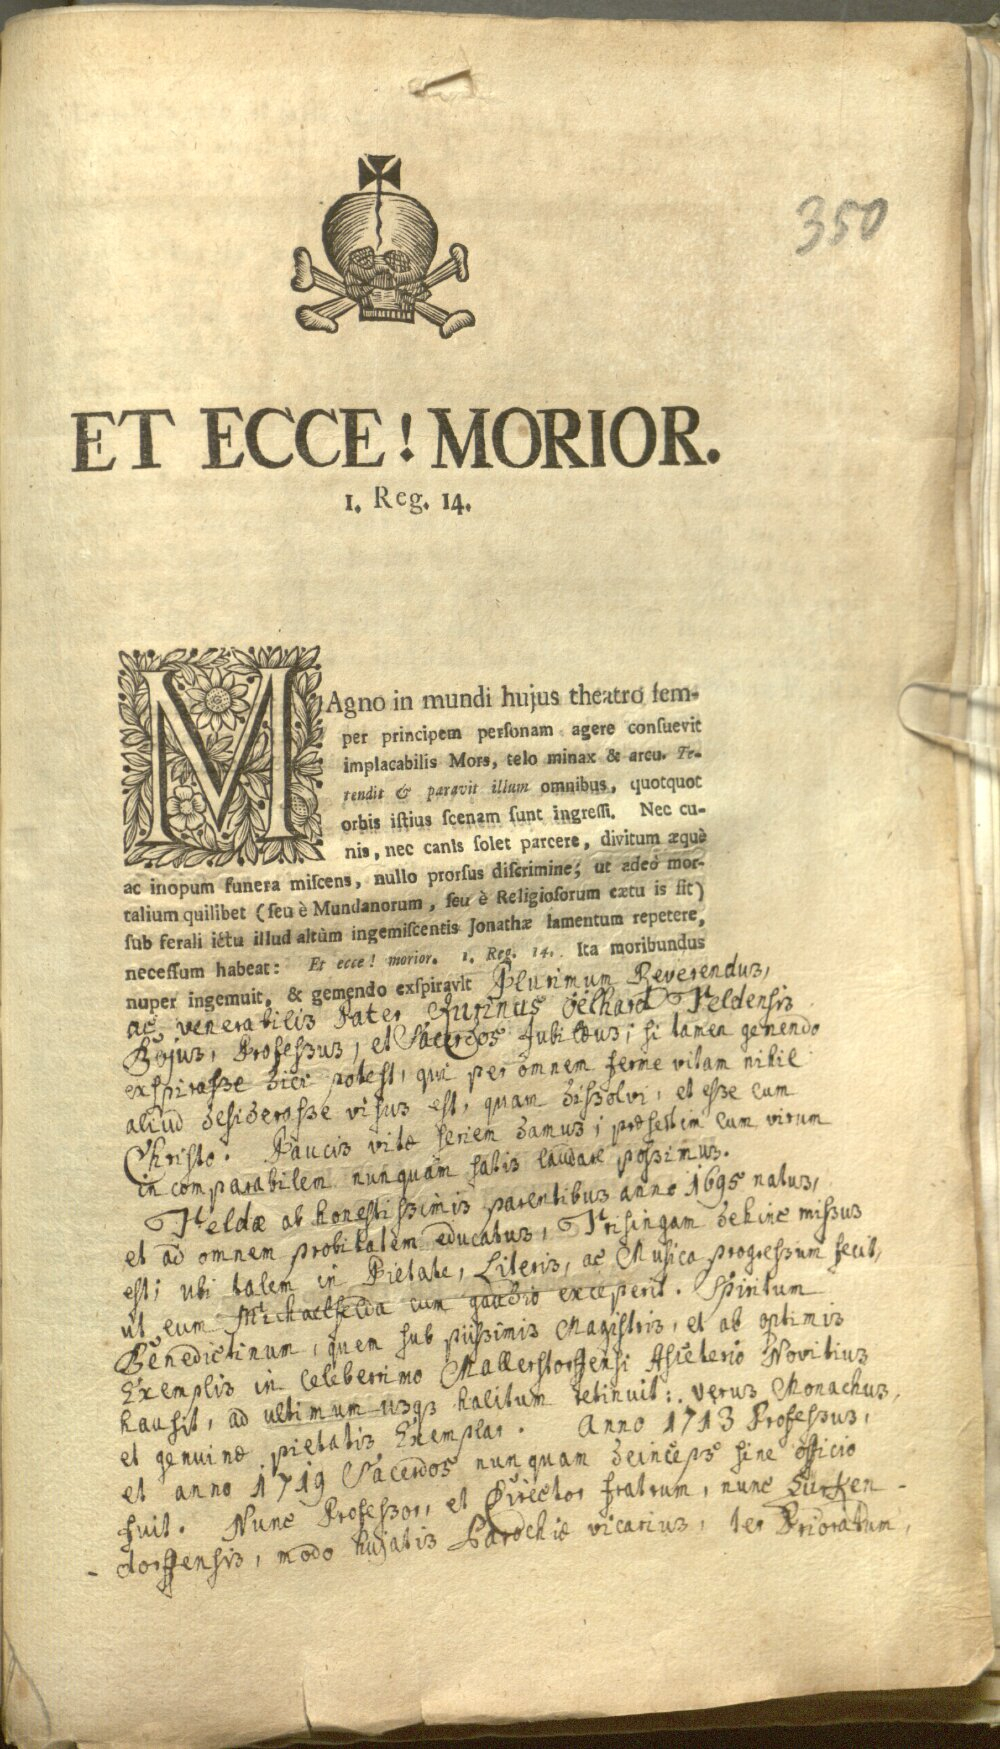 350
ET ECCE! MORIOR.
1. Reg. 14.
MAgno in mundi hujus theatro sem-
per principem personam agere consuevit
implacabilis Mors, telo minax & arcu. Te-
tendit & paravit illum omnibus, quotquot
orbis istius scenam sunt ingressi. Nec cu-
nis, nec canis solet parcere, divitum æquè
ac inopum funera miscens, nullo prorsus discrimine; ut adeò mor-
talium quilibet (seu è Mundanorum, seu è Religiosorum cætu is sit)
sub ferali ictu illud altùm ingemiscentis Jonathæ lamentum repetere,
necessum habeat: Et ecce! morior. 1. Reg. 14. Ita moribundus
nuper ingemuit, & gemendo exspiravit Plurimum Reverendus,
ac venerabilis Pater Oelhard Veldensis
Bojus, Professus, et Sacerdos Jubilæus; si tamen gemendo
exspirasse dici potest, qui per omnem ferme vitam nihil
aliud desiderasse visus est, quam dissolvi, et esse cum
Christo. Paucis vitæ seriem damus; præsertim cum virum
incomparabilem nunquam satis laudare possimus.
Veldæ ab honestissimis parentibus anno 1695 natus,
et ad omnem probitatem educatus, Frisingam dehinc missus
est; ubi talem in Pietate, Literis, ac Musica progressum fecit,
ut eum cum gaudio exceperit. Spiritum
Benedictinum, quem sub piissimis Magistris, et ab optimis
Exemplis in celeberrimo Mallerstorffensi Asceterio Novitius
hausit, ad ultimum usq3 halitum retinuit: verus Monachus,
et genuinæ pietatis Exemplar. Anno 1713 Professus,
et anno 1719 Sacerdos nunquam deinceps sine officio
fuit. Nunc Professor, et Director fratrum, nunc
-dorffensis, modo hujatis Parochiæ vicarius, ter Prioratum,